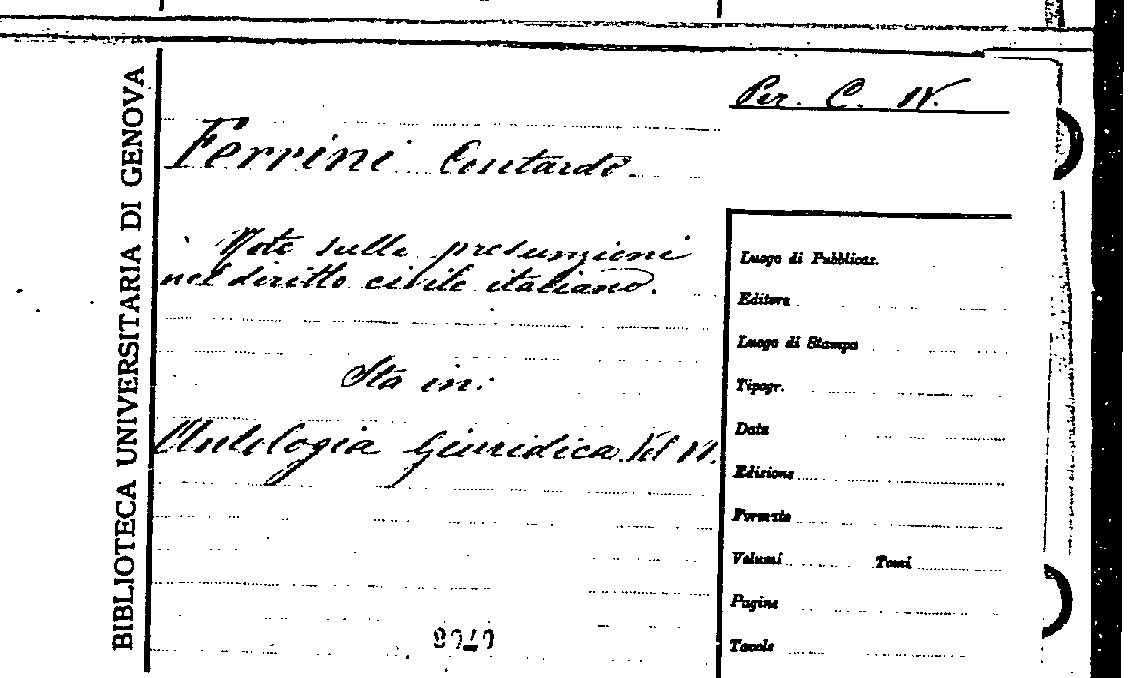 BIBLIOTECA UNIVERSITARIA DI GENOVA
Per. C. IV.
Ferrini Contardo.
Note sulle presunzioni
nel diritto civile italiano.
Sta in:
Antologia Giuridica Vol VI.
Luogo di Pubblicaz.
Editore
Luogo di Stampa
Tipogr.
Data
Edizione
Formato
Volumi Tomi
Pagine
Tavole